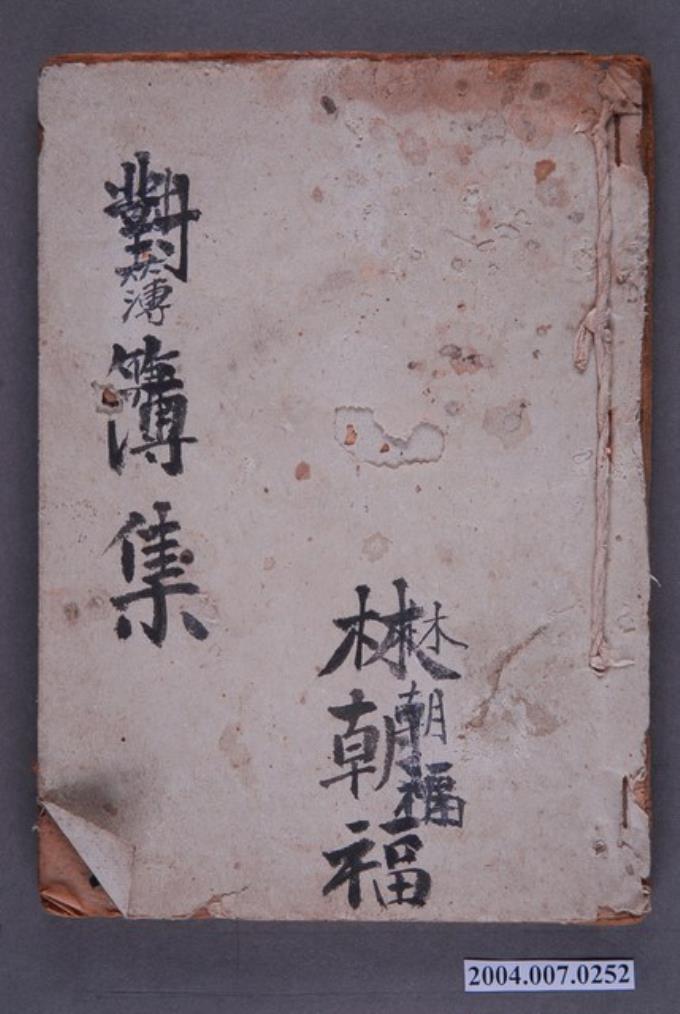 林朝福
林朝福
對簿集
簿
2004.007.0252